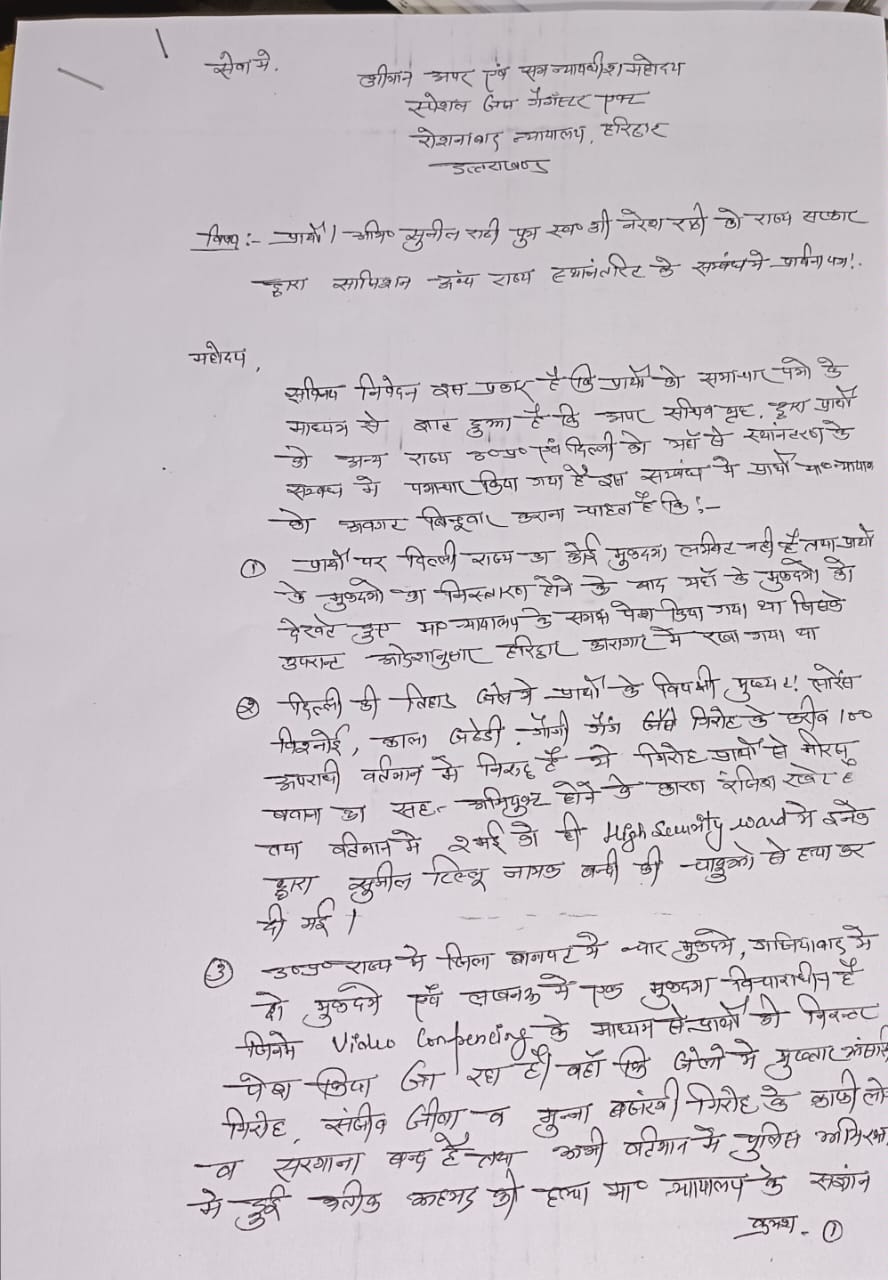 सेवा मे,
श्रीमान अपर एवं सत्र न्यायधीश महोदय
स्पेशल जज गैंगस्टर एक्ट
रोशनाबाद न्यायालय, हरिद्वार
उत्तराखण्ड
विषय:- प्रार्थी/अभि० सुनील राठी पुत्र स्व० श्री नरेश राठी को राज्य सरकार
द्वारा अन्य राज्य स्थानंतरित के सम्बंध मे प्रार्थना पत्र।.
महोदय,
सविनय निवेदन इस प्रकार है कि प्रार्थी को समाचार पत्रो के
माध्यम से ज्ञात हुआ है कि अपर सचिव गृह, द्वारा प्रार्थी
को अन्य राज्य उ०प्र० एवं दिल्ली को यहाँ से स्थांनतरण के
सम्बंध मे पत्राचार किया गया है इस सम्बंध मे प्रार्थी मा० न्यायाल
को अवगत बिन्दूवार कराना चाहता है कि:-
① प्रार्थी पर दिल्ली राज्य का कोई मुकदमा लम्बित नही है तथा प्रार्थी
के मुकदमो का निस्तारण होने के बाद यहाँ के मुकदमो को
देखते हुए मा० न्यायालय के समक्ष पेश किया गया था जिसके
उपरान्त आदेशानुसार हरिद्वार कारागार मे रखा गया था
② दिल्ली की तिहाड जेल मे प्रार्थी के विपक्षी मुख्यत! लारेंस
विश्नोई, काला जठेडी, गोगी गैंग जैसे गिरोह के करीब 100
अपराधी वर्तमान मे निरूद्ध है ये गिरोह प्रार्थी से नीरज
बवाना का सह- अभियुक्त होने के कारण रंजिश रखते है
तथा वर्तमान मे 2 मई को ही High Security ward मे इनके
द्वारा सुनील टिल्लू नामक बन्दी की चाकुओ से हत्या कर
दी गई।
③ उ०प्र० राज्य मे जिला बागपत मे चार मुकदमे, गाजियाबाद मे
दो मुकदमे एवं लखनऊ मे एक मुकदमा विचाराधीन है
जिनमे Video Confrencing के माध्यम से प्रार्थी को निरन्तर
पेश किया जा रहा है। वहाँ कि जेलो मे मुख्तार अंसारी
गिरोह, संजीव जीवा व मुन्ना बजंरगी गिरोह के काफी लो
व सरगना बन्द है तथा अभी वर्तमान मे पुलिस अभिरक्षा
मे हुई अतीक अहमद की हत्या मा० न्यायालय के सज्ञांन
क्रमश - ①